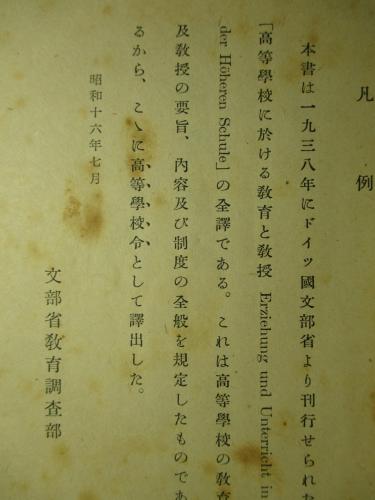 凡例
本書は一九三八年にドイツ國文部省より刊行せられた
「高等學校に於ける敎育と敎授 Erziehung und Unterricht in
der Höheren Schule」の全譯である。これは高等學校の敎育
及敎授の要旨、內容及び制度の全般を規定したものであ
るから、こゝに高等學校令として譯出した。
昭和十六年七月
文部省敎育調查部